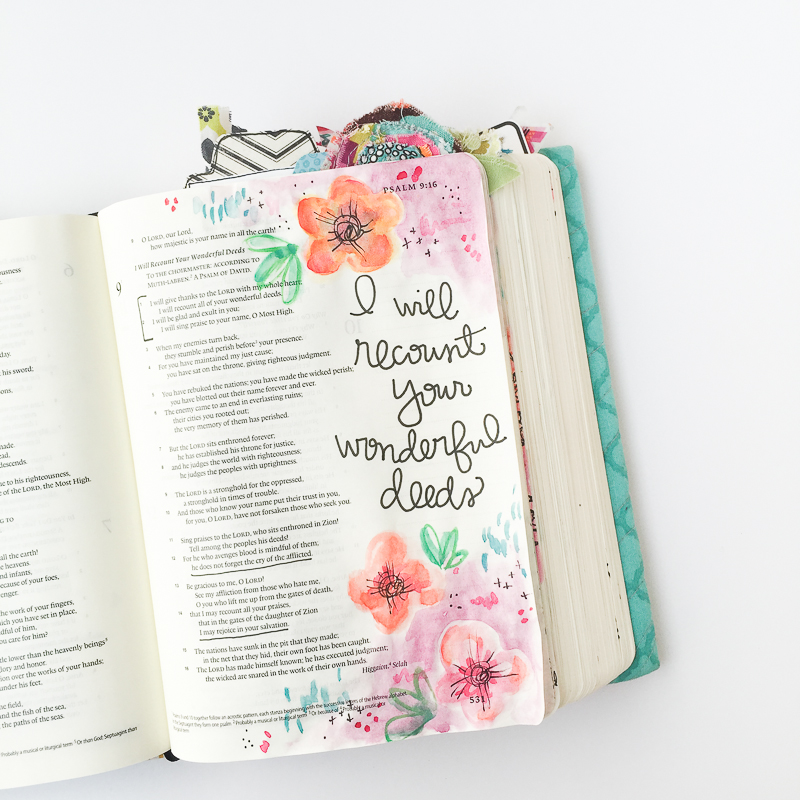 eousness
day.
his sword;
sons.
made.
ead.
descends.
e to his righteousness,
e of the LORD, the Most High.
NG TO
all the earth!
e heavens.
nd infants,
because of your foes,
venger.
the work of your fingers,
ich you have set in place,
ndful of him,
ou care for him?
ttle lower than the heavenly beings
lory and honor.
on over the works of your hands;
under his feet,
he field,
and the fish of the sea,
the paths of the seas.
Probably a musical or liturgical term
Or than God; Septuagint than
PSALM 9:16
9 O LORD, our Lord,
how majestic is your name in all the earth!
I Will Recount Your Wonderful Deeds
TO THE CHOIRMASTER: ACCORDING TO
MUTH-LABBEN. A PSALM OF DAVID.
9
I will give thanks to the LORD with my whole heart;
I will recount all of your wonderful deeds.
2 I will be glad and exult in you;
I will sing praise to your name, O Most High.
3 When my enemies turn back,
they stumble and perish before your presence.
4 For you have maintained my just cause;
you have sat on the throne, giving righteous judgment.
5 You have rebuked the nations; you have made the wicked perish;
you have blotted out their name forever and ever.
6 The enemy came to an end in everlasting ruins;
their cities you rooted out;
the very memory of them has perished.
7 But the LORD sits enthroned forever;
he has established his throne for justice,
8 and he judges the world with righteousness;
he judges the peoples with uprightness.
9 The LORD is a stronghold for the oppressed,
a stronghold in times of trouble.
10 And those who know your name put their trust in you,
for you, O LORD, have not forsaken those who seek you.
11 Sing praises to the LORD, who sits enthroned in Zion!
Tell among the peoples his deeds!
12 For he who avenges blood is mindful of them;
he does not forget the cry of the afflicted.
13 Be gracious to me, O LORD!
See my affliction from those who hate me,
O you who lift me up from the gates of death,
14 that I may recount all your praises,
that in the gates of the daughter of Zion
I may rejoice in your salvation.
15 The nations have sunk in the pit that they made;
in the net that they hid, their own foot has been caught.
16 The LORD has made himself known; he has executed judgment;
the wicked are snared in the work of their own hands.
Higgaion. Selah
I will
recount
your
wonderful
deeds
together follow an acrostic pattern, each stanza beginning with the successive letters of the Hebrew alphabet.
Probably a musical or liturgical term
Or because of
Probably a musical
531